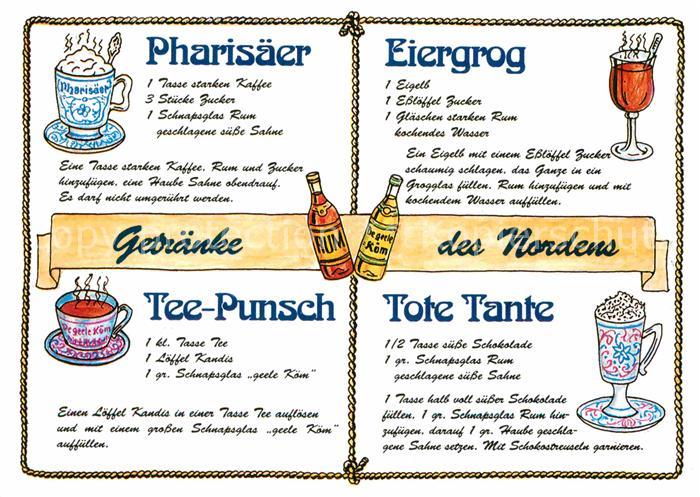 Pharisäer
Pharisäer
1 Tasse starken Kaffee
3 Stücke Zucker
1 Schnapsglas Rum
geschlagene süße Sahne
Eine Tasse starken Kaffee, Rum und Zucker
hinzufügen, eine Haube Sahne obendrauf.
Es darf nicht umgerührt werden.
Eiergrog
1 Eigelb
1 Eßlöffel Zucker
1 Gläschen starken Rum
kochendes Wasser
Ein Eigelb mit einem Eßlöffel Zucker
schaumig schlagen, das Ganze in ein
Grogglas füllen, Rum hinzufügen und mit
kochendem Wasser auffüllen.
Getränke
RUM
De geele
Köm
des Nordens
Tee-Punsch
De geele Köm
1 kl. Tasse Tee
1 Löffel Kandis
1 gr. Schnapsglas „geele Köm"
Einen Löffel Kandis in einer Tasse Tee auflösen
und mit einem großen Schnapsglas „geele Köm"
auffüllen.
Tote Tante
1/2 Tasse süße Schokolade
1 gr. Schnapsglas Rum
geschlagene süße Sahne
1 Tasse halb voll süßer Schokolade
füllen, 1 gr. Schnapsglas Rum hin-
zufügen, darauf 1 gr. Haube geschla-
gene Sahne setzen. Mit Schokostreuseln garnieren.